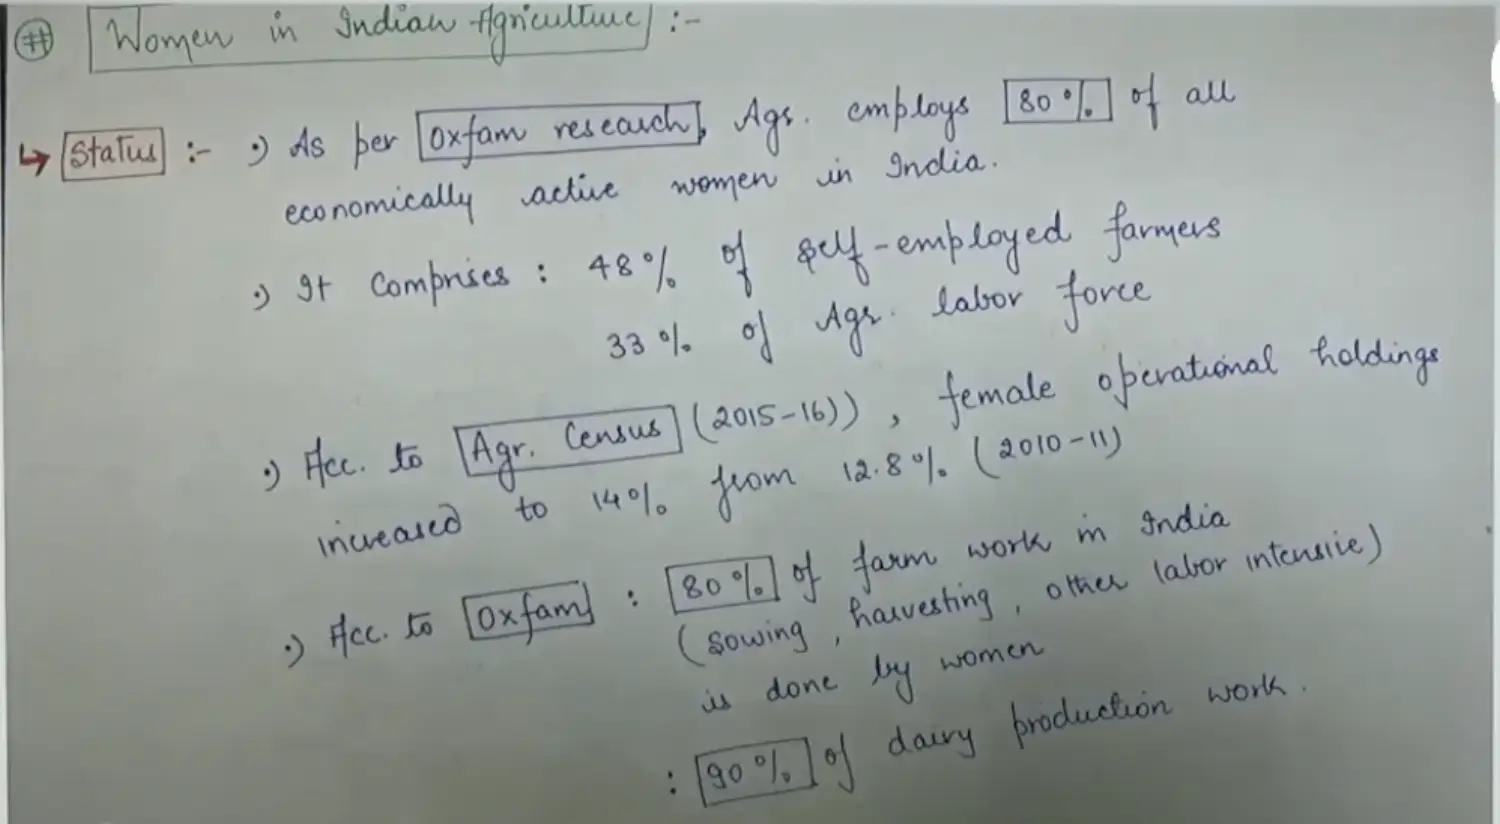 # Women in Indian Agriculture :-
↳ Status :- •) As per Oxfam research, Agr. employs 80% of all
economically active women in India.
•) It Comprises : 48% of self-employed farmers
33% of Agr. labor force
•) Acc. to Agr. Census (2015-16)) , female operational holdings
increased to 14% from 12.8% (2010-11)
•) Acc. to Oxfam : 80% of farm work in India
(sowing, harvesting, other labor intensive)
is done by women
: 90% of dairy production work.